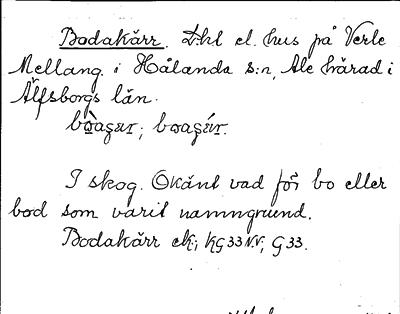 Bodakärr. t.hl el. hus på Verle
Mellang. i Hålanda s:n, Ale härad i
Älfsborgs län.
I skog. Okänt vad för bo eller
bod som varit namngrund.
Bodakärr ek; KG33 N.V; G33.